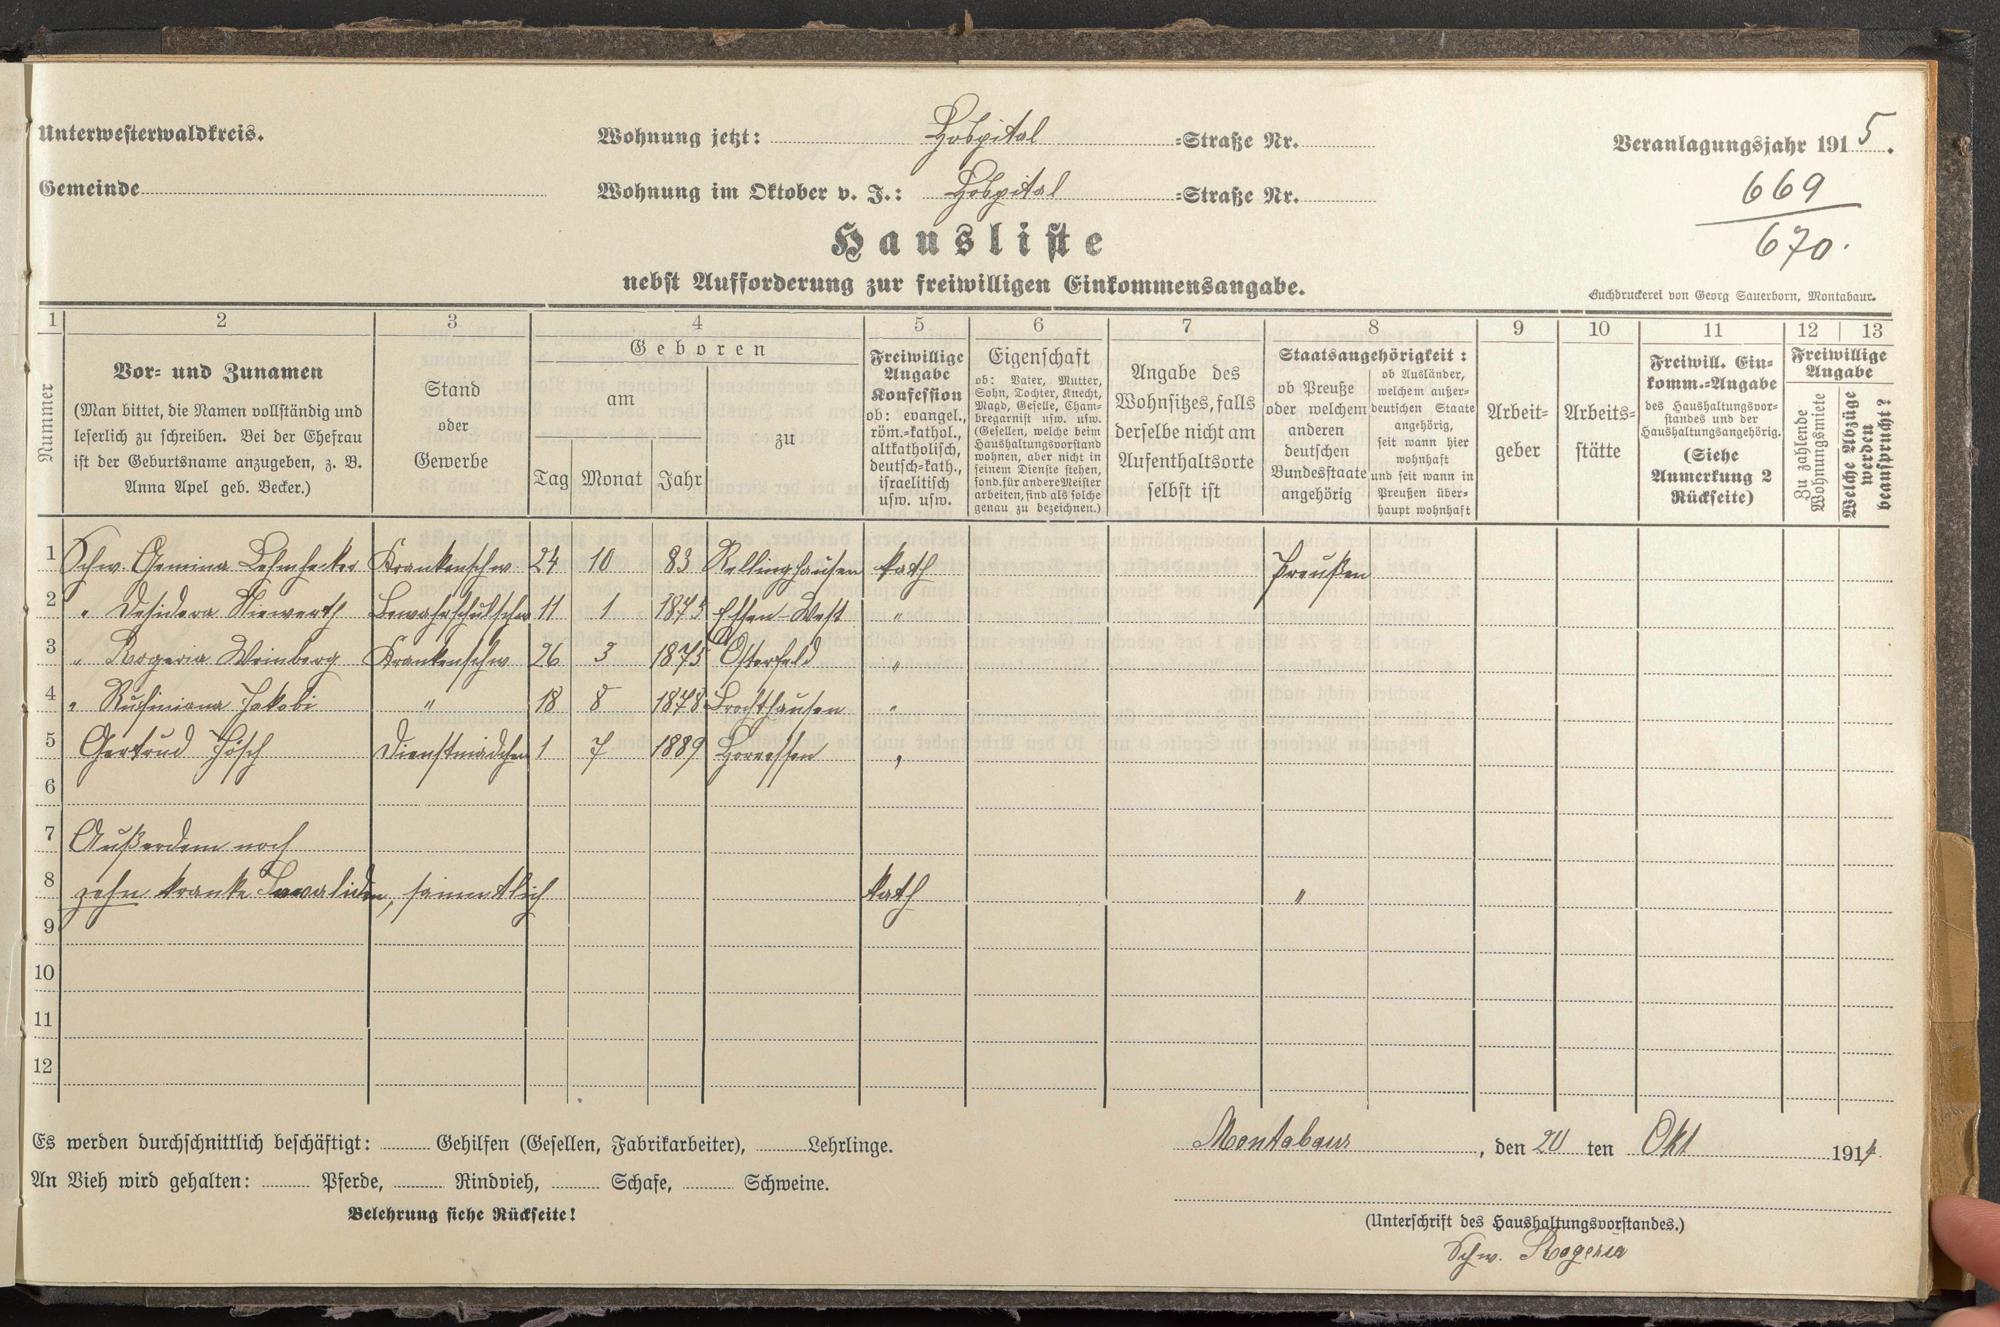 Unterwesterwaldkreis.
Gemeinde
Wohnung jetzt: Hospital =Straße Nr.
Wohnung im Oktober v. J.: Hospital =Straße Nr.
Veranlagungsjahr 1915.
669
670.
Hausliste
nebst Aufforderung zur freiwilligen Einkommensangabe.
Buchdruckerei von Georg Sauerborn, Montabaur.
1 2 3 4 5 6 7 8 9 10 11 12 13
Nummer
Vor- und Zunamen
(Man bittet, die Namen vollständig und
leserlich zu schreiben. Bei der Ehefrau
ist der Geburtsname anzugeben, z. B.
Anna Apel geb. Becker.)
Stand
oder
Gewerbe
Geboren
am
Tag Monat Jahr
zu
Freiwillige
Angabe
Konfession
ob: evangel.,
röm.-kathol.,
altkatholisch,
deutsch-kath.,
israelitisch
usw. usw.
Eigenschaft
ob: Vater, Mutter,
Sohn, Tochter, Knecht,
Magd, Geselle, Cham-
bregarnist usw. usw.
(Gesellen, welche beim
Haushaltungsvorstand
wohnen, aber nicht in
seinem Dienste stehen,
sond. für andere Meister
arbeiten, sind als solche
genau zu bezeichnen.)
Angabe des
Wohnsitzes, falls
derselbe nicht am
Aufenthaltsorte
selbst ist
Staatsangehörigkeit:
ob Preuße
oder welchem
anderen
deutschen
Bundesstaate
angehörig
ob Ausländer,
welchem außer-
deutschen Staate
angehörig,
seit wann hier
wohnhaft
und seit wann in
Preußen über-
haupt wohnhaft
Arbeit-
geber
Arbeits-
stätte
Freiwill. Ein-
komm.-Angabe
des Haushaltungsvor-
standes und der
Haushaltungsangehörig.
(Siehe
Anmerkung 2
Rückseite)
Freiwillige
Angabe
Zu zahlende
Wohnungsmiete
Welche Abzüge
werden
beansprucht?
1 Schw. Gemina Krankenschw 24 10 83 Rellinghausen kath Preußen
2 " Desidera Siewerth Bewahrschulschw 11 1 1875 Essen-West "
3 " Rogeria Weinberg Krankenschw 26 3 1875 Osterfeld "
4 " Rufiniana Jakobi " 18 8 1878 "
5 Gertrud Hösch Dienstmädchen 1 7 1889 Horressen "
6
7 Außerdem noch
8 zehn kranke Invaliden, sämmtlich kath "
9
10
11
12
Es werden durchschnittlich beschäftigt: Gehilfen (Gesellen, Fabrikarbeiter), Lehrlinge.
An Vieh wird gehalten: Pferde, Rindvieh, Schafe, Schweine.
Belehrung siehe Rückseite!
Montabaur, den 20 ten Okt 1914
(Unterschrift des Haushaltungsvorstandes.)
Schw. Rogeria